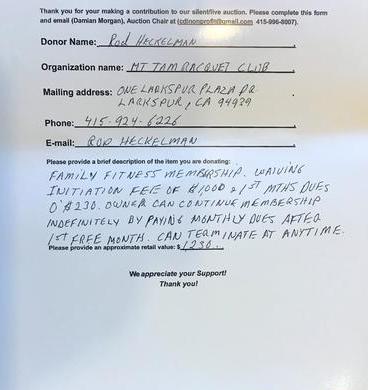 Thank you for your making a contribution to our silent/live auction. Please complete this form
and email (Damian Morgan), Auction Chair at (cdlnonprofit@gmail.com 415-996-8007).
Donor Name: Rod Heckelman
Organization name: MT TAM RACQUET CLUB
Mailing address: ONE LARKSPUR PLAZA DR
LARKSPUR, CA 94939
Phone: 415-924-6226
E-mail: ROD HECKELMAN
Please provide a brief description of the item you are donating:
FAMILY FITNESS MEMBERSHIP. WAIVING
INITIATION FEE OF $1,000 & 1ST MTHS DUES
O'$230. OWNER CAN CONTINUE MEMBERSHIP
INDEFINITELY BY PAYING MONTHLY DUES AFTER
1ST FREE MONTH. CAN TERMINATE AT ANYTIME.
Please provide an approximate retail value: $1230.
We appreciate your Support!
Thank you!